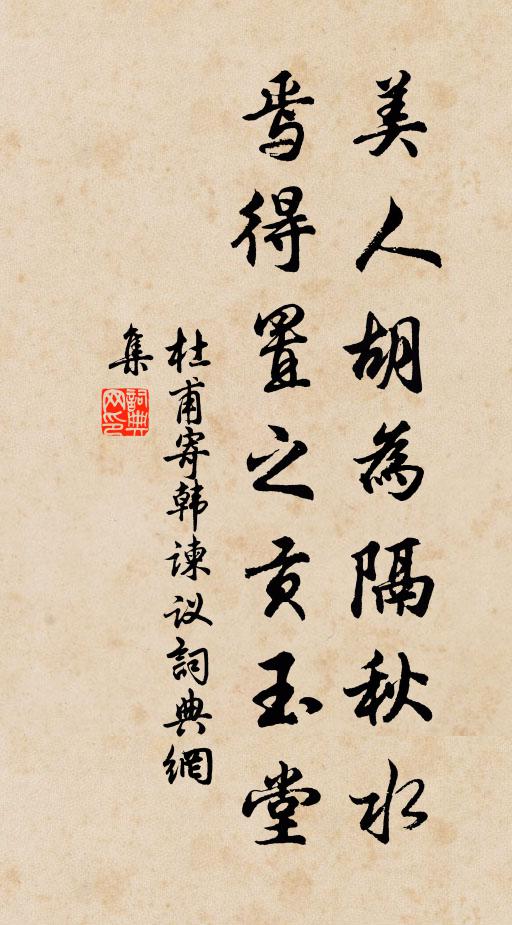 美人胡為隔秋水
焉得置之贡玉堂
杜甫寄韩谏议詞典網
集
詞典
网印